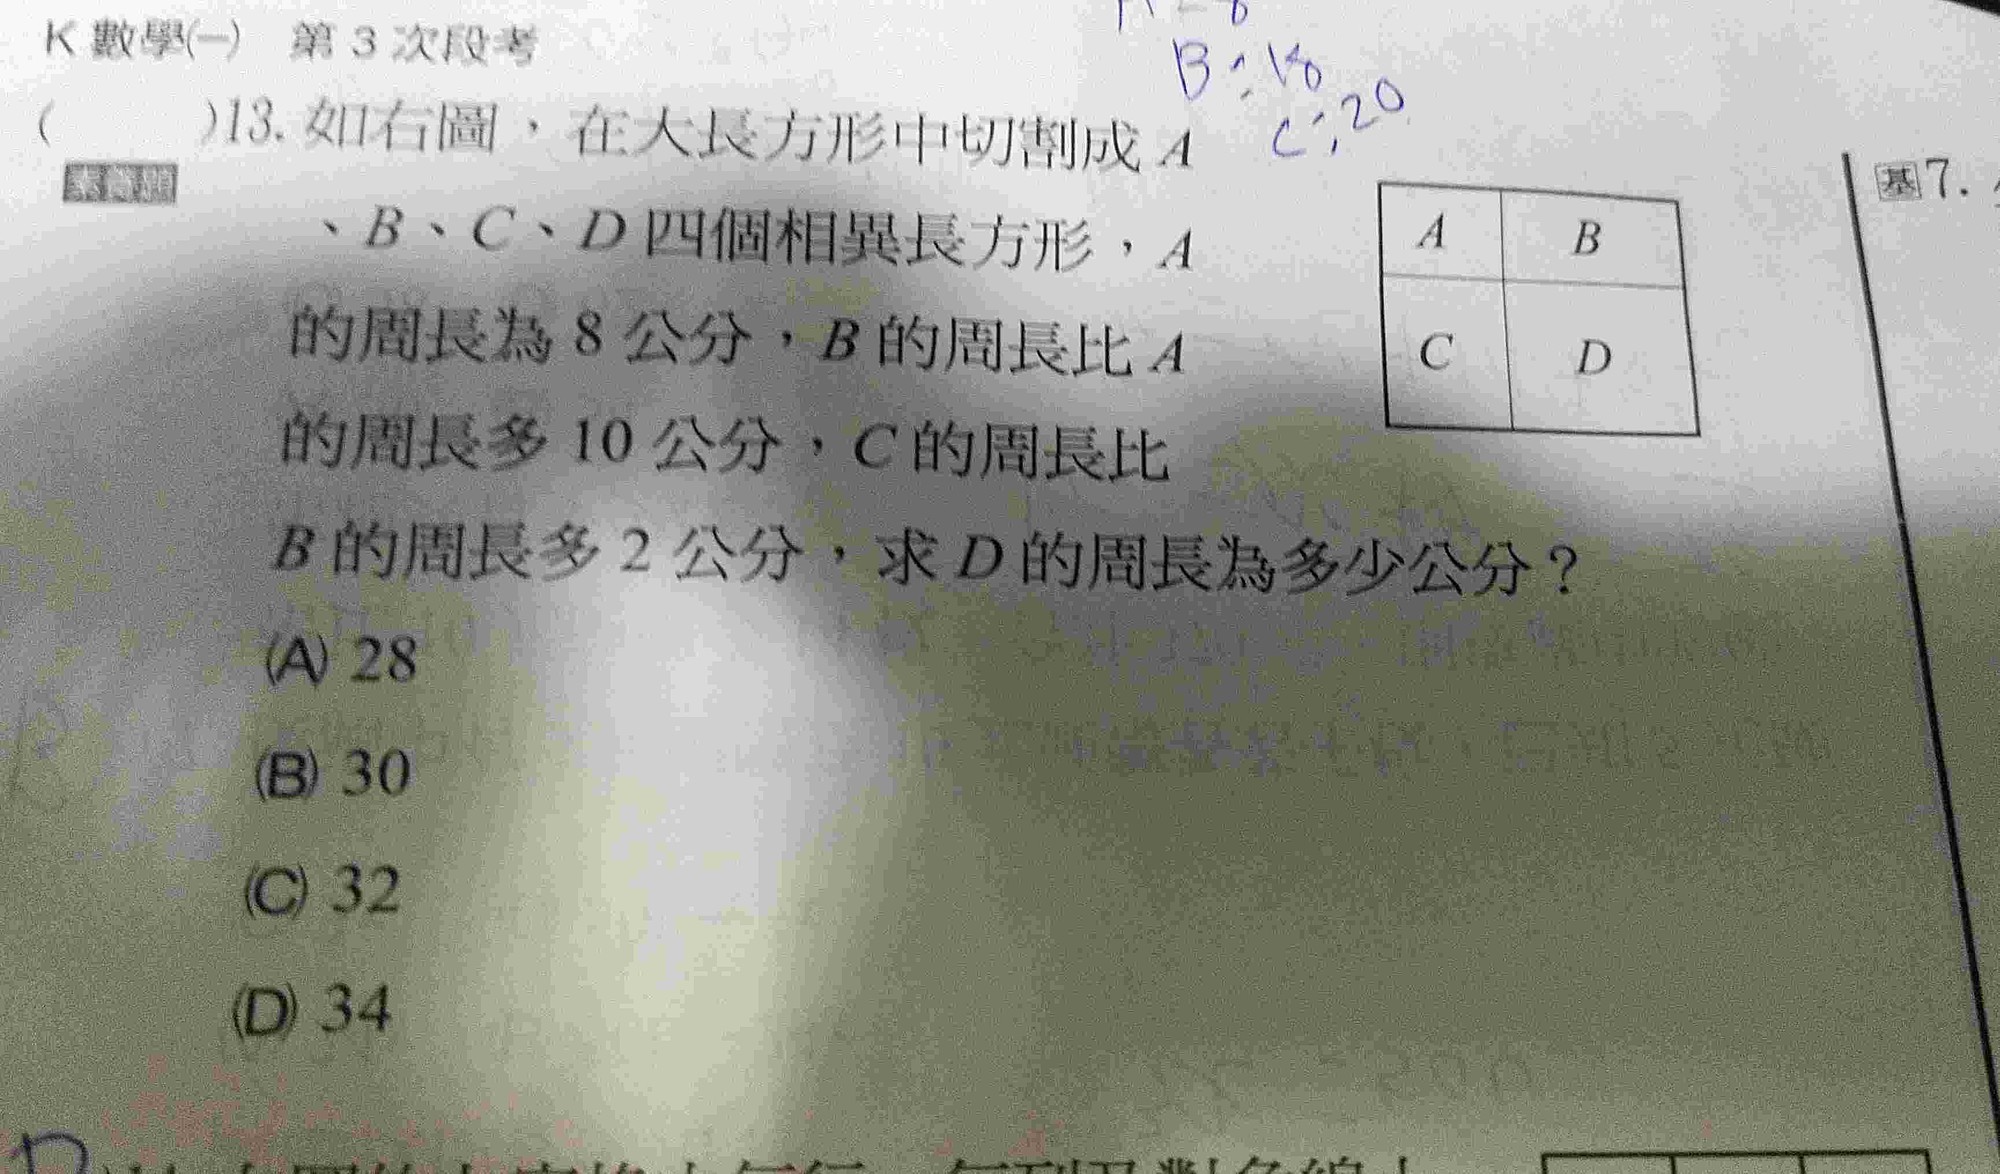 K 數學(一) 第 3 次段考
B:18
C:20
( )13. 如右圖,在大長方形中切割成 A
、B、C、D 四個相異長方形,A
的周長為 8 公分,B 的周長比 A
的周長多 10 公分,C 的周長比
B 的周長多 2 公分,求 D 的周長為多少公分?
A B
C D
(A) 28
(B) 30
(C) 32
(D) 34
基 7.